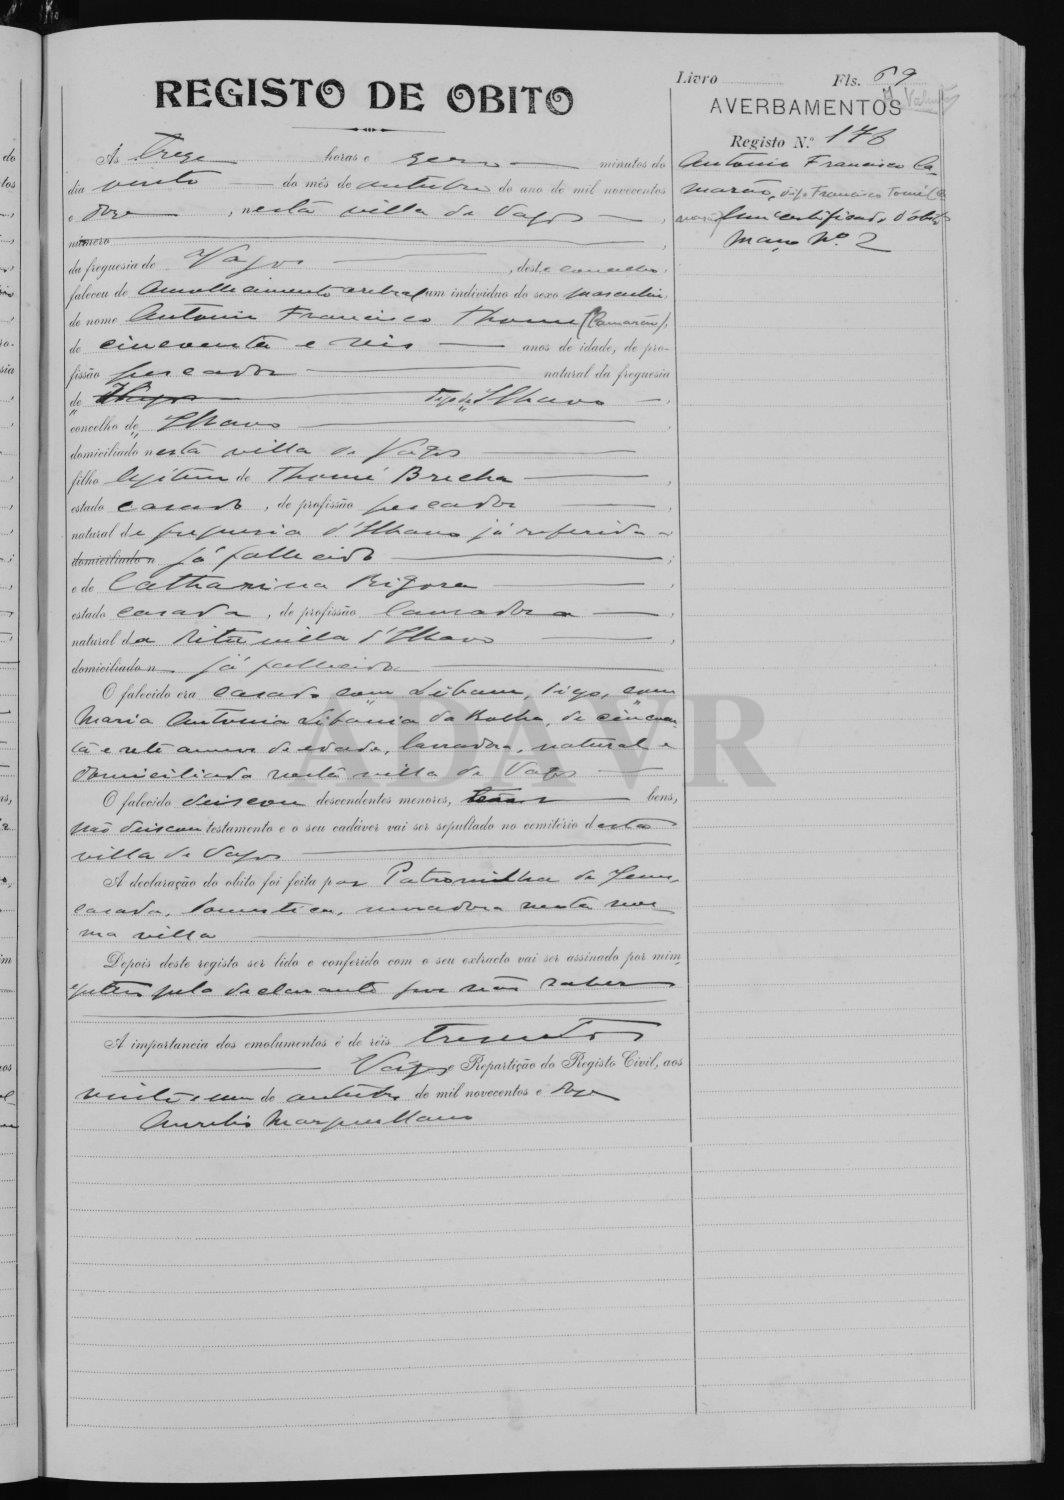 Livro Fls. 69
REGISTO DE OBITO
AVERBAMENTOS
Registo N.º 176
Antonio Francisco Ca-
marão, digo Francisco Tomé (Ca
marão) tem certificado d'obito
Maço Nº 2
Ás treze horas e zero minutos do
dia vinte do mês de outubro do ano de mil novecentos
e doze, nesta villa de Vagos,
número
da freguesia de Vagos, deste concelho,
faleceu de amollecimento cerebral um individuo do sexo masculino
de nome Antonio Francisco Thomé (Camarão),
de cincoenta e seis anos de idade, de pro-
fissão pescador natural da freguesia
de Vagos digo de Ilhavo,
concelho de Ilhavo,
domiciliado nesta villa de Vagos
filho legitimo de Thomé Brecha,
estado casado, de profissão pescador,
natural da freguesia d'Ilhavo já referida e
domiciliado n já fallecido;
e de Catharina Rigora,
estado casada, de profissão lavradora,
natural da dita villa d'Ilhavo,
domiciliado n já fallecida
O falecido era casado com Libam, digo, com
Maria Antonia Libania da Rocha, de cincoen
ta e sete annos de edade, lavradora, natural e
domiciliada nesta villa de Vagos
O falecido deixou descendentes menores, bens,
não deixou testamento e o seu cadáver vai ser sepultado no cemitério desta
villa de Vagos
A declaração do obito foi feita por Patronilha de Jesus,
casada, domestica, moradora nesta mes
ma villa
Depois deste registo ser lido e conferido com o seu extracto vai ser assinado por mim,
pela declarante por não saber
A importancia dos emolumentos é de réis trezentos
Vagos e Repartição do Registo Civil, aos
vinte e um de outubro de mil novecentos e doze
Aurelio Marques Mano
ADAVR